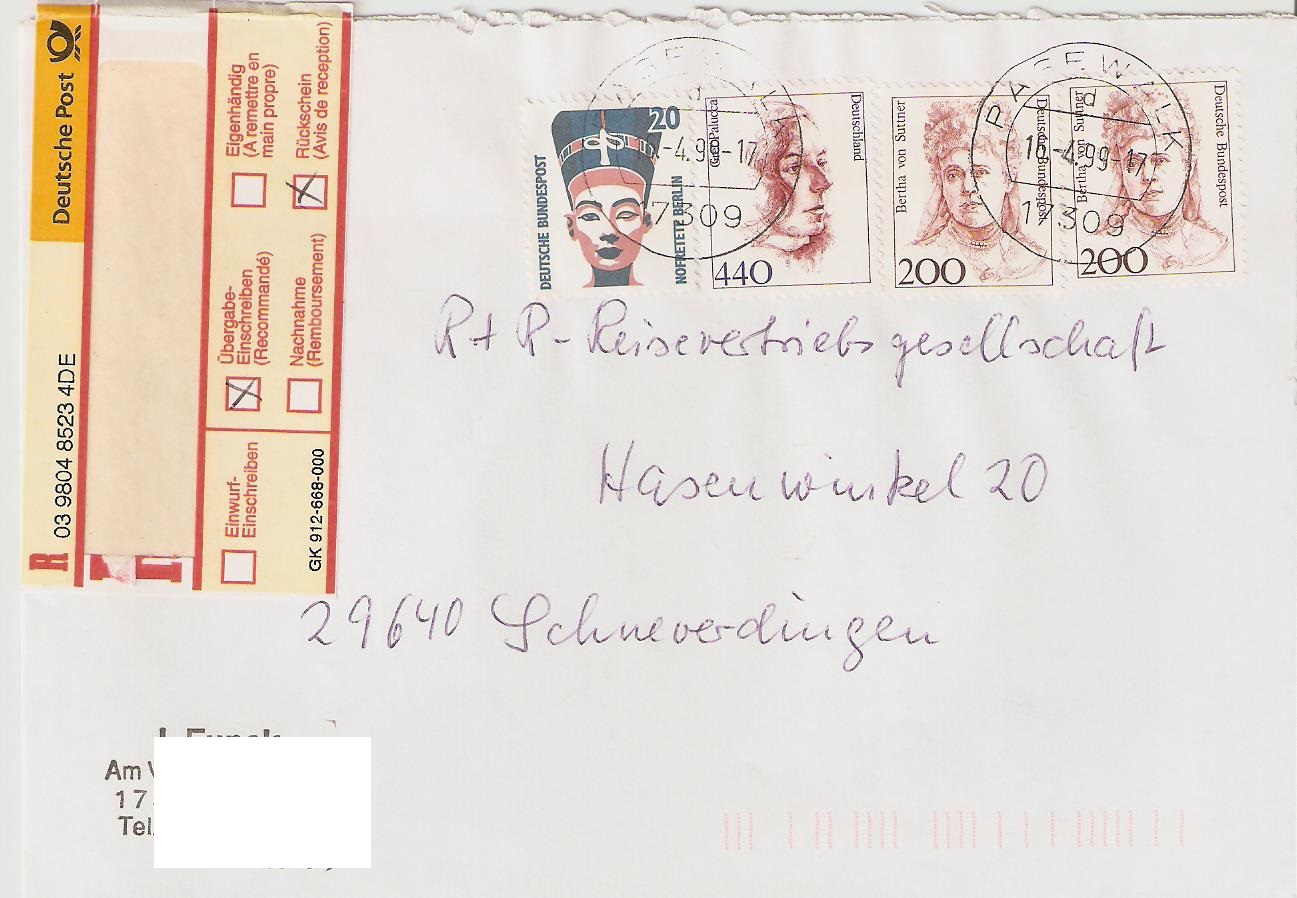 Deutsche Post
R 03 9804 8523 4DE
Einwurf-
Einschreiben
Übergabe-
Einschreiben
(Recommandé)
Eigenhändig
(A remettre en
main propre)
GK 912-668-000
Nachnahme
(Remboursement)
Rückschein
(Avis de reception)
20
DEUTSCHE BUNDESPOST
NOFRETETE BERLIN
Gret Palucca
Deutschland
440
Bertha von Suttner
Deutsche Bundespost
200
Bertha von Suttner
Deutsche Bundespost
200
-4.9 -17
17309
PASEWALK
d
16-4.99-17
17309
R+R-Reisevertriebsgesellschaft
Hasenwinkel 20
29640 Schneverdingen
Am
17
Tel.